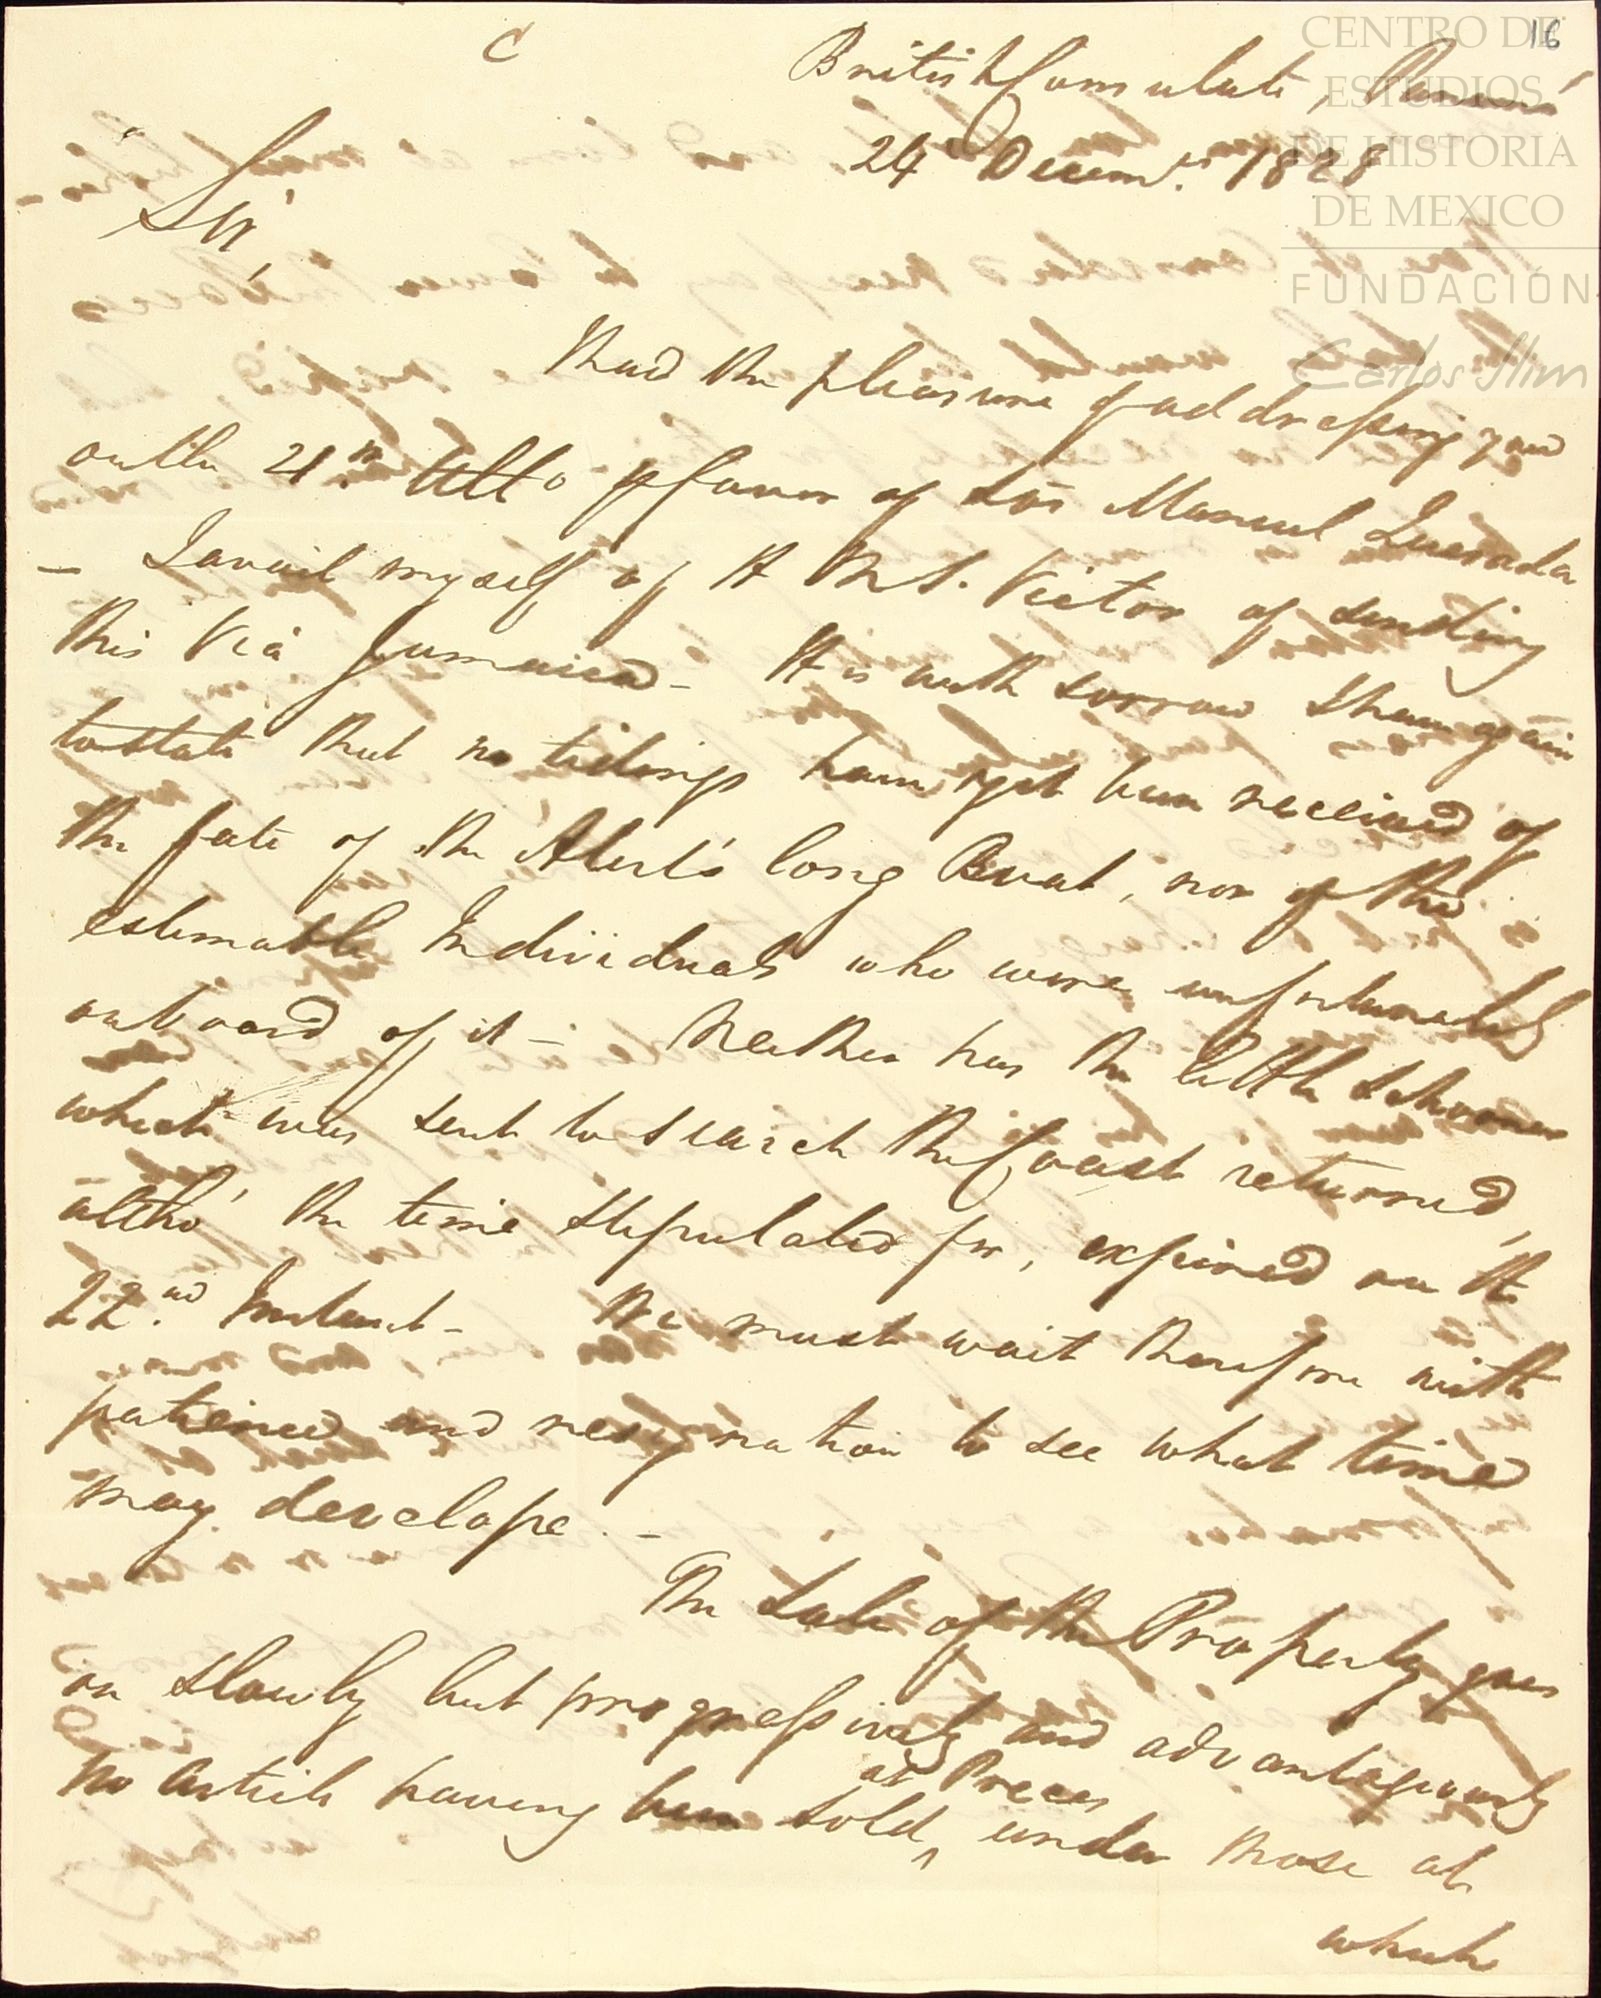 C
16
British Consulate, Panamá
24 Decemr. 1828
CENTRO DE
ESTUDIOS
DE HISTORIA
DE MEXICO
FUNDACIÓN
Carlos Slim
Sir,
I had the pleasure of addressing you
on the 21st. Ulto p favor of Sor Manuel Quesada
— I avail myself of H M S. Victor of sending
this Viá Jamaica — It is with sorrow I have again
to state that no tidings have yet been received of
the fate of the Alert's long Boat, nor of the
estimable Individuals who were unfortunately
onboard of it — Neither has the little schooner
which was sent to search the Coast returned,
altho' the time stipulated for, expired on the
22nd. Instant — We must wait therefore with
patience and resignation to see what time
may develope. —
The Sale of the Property goes
on slowly but progressively and advantageously
at Prices
no Article having been sold, under those at
which